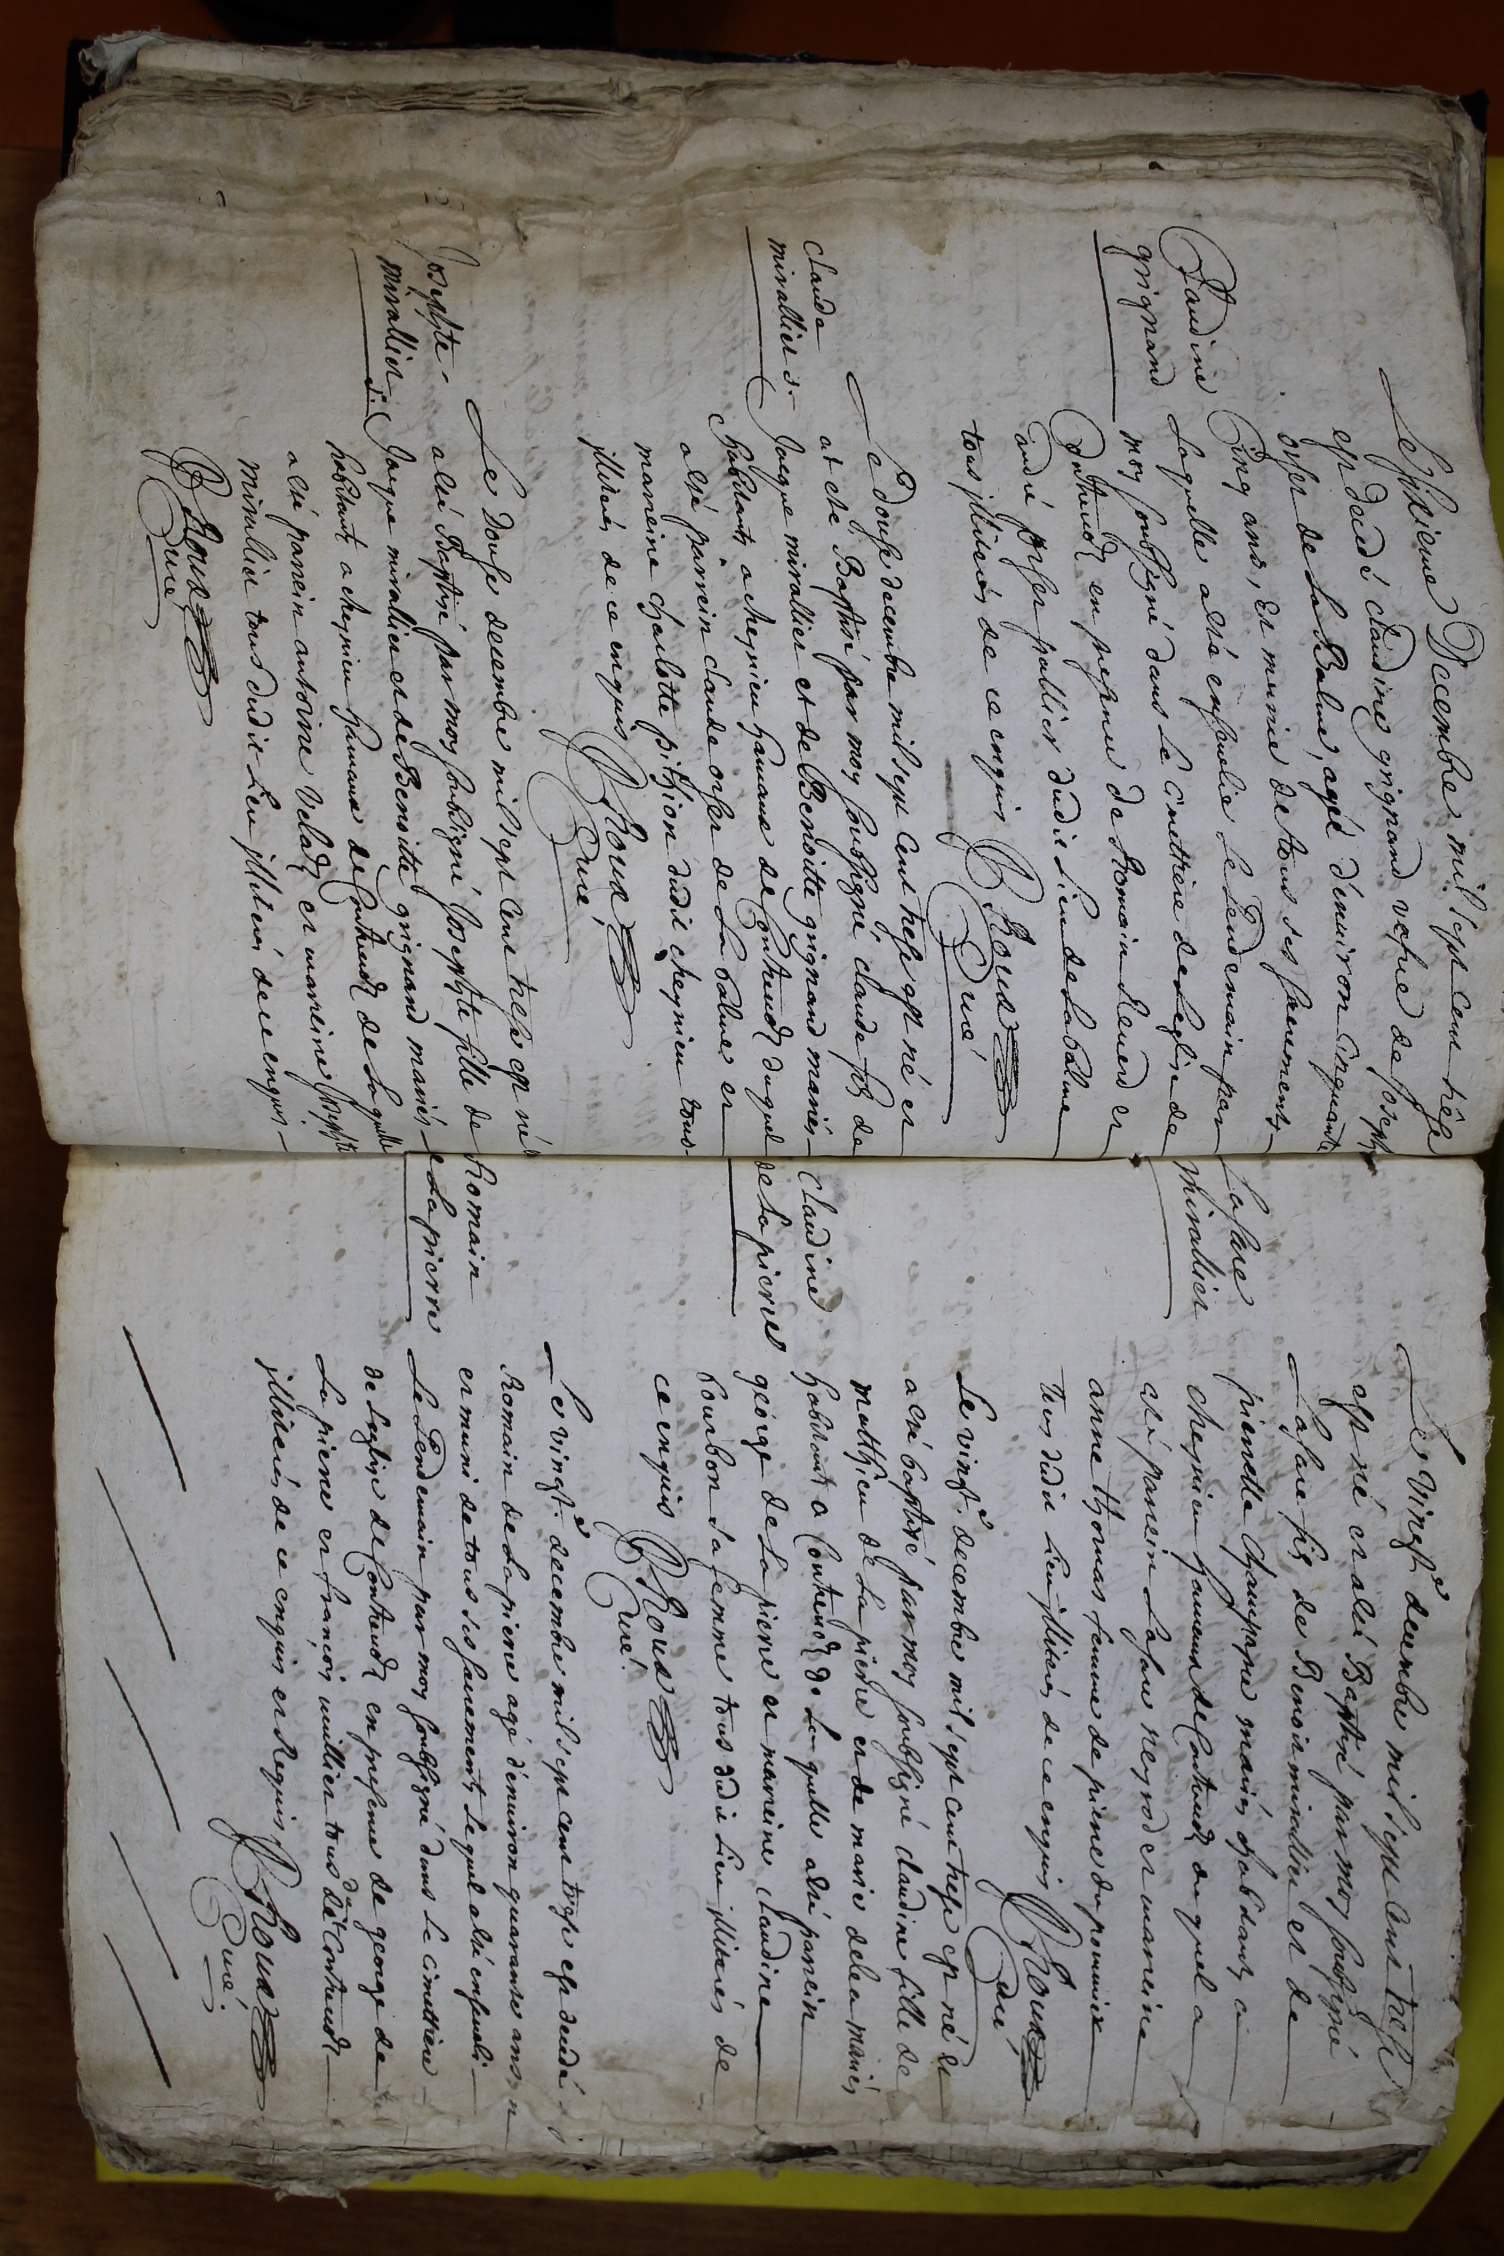 Le sixieme Decembre mil sept cent trèse
est decedé claudine grignand vefve de Joseph
orser de La Balme, agée d'environ cinquante
Cinq ans, et munie de tous ses sacrements
Claudine
grignand
Laquelle a esté ensepvelie Le Lendemain par
moy soubsigné dans Le Cimettiere de Leglise de
Contrevoz en presence de Romain et
andré orser pallier dudit Lieu de La balme
tous jllitterés de ce enquis
P Roux
Curé
Le douse decembre mil sept Cent trese est né et
at esté Baptisé par moy soubsigné, claude fils de
claude
mirallier j.
Jacque mirallier et de Benoitte grignand mariés
habitants a cheynieu hameau de Contrevoz duquel
a esté parrein claude orser de La balme et
marreine charlotte pithion dudit cheynieu tous
jllitterés de ce enquis
P Roux
Curé
Le douse decembre mil sept Cent trese est né
a esté Baptisé par moy soubsigné Josephte fille de
Josephte
mirallier
j.
Jacque mirallier et de Benoitte grignand mariés
habitants a cheynieu hameau de Contrevoz de Laquelle
a esté parrein antoine Velad et marreine Josephte
mirallier tous dudit Lieu jllitterés de ce enquis
P Roux
Curé
Le Vingt.e decembre mil sept Cent trese
est né et a esté Baptisé par moy soubsigné
Lasare fils de Benoit mirallier et de
Lasare
Mirallier
pierrette Champagne mariés habitants a
cheynieu hameau de Contrevoz duquel a
esté parrein Lasare reyrod et marreine
anne thomas femme de pierre du pommier
tous dudit Lieu jllitterés de ce enquis
P Roux
Curé
Le vingt.e decembre mil sept cent trese est né et
a esté baptisé par moy soubsigné claudine fille de
claudine
de La pierre
matthieu de La pierre et de marie delea mariés
habitants a Contrevoz de Laquelle a esté parrein
george de La pierre et marreine claudine
bourbon sa femme tous dudit Lieu jllitterés de
ce enquis
P Roux
Curé.
Le vingt.e decembre mil sept cent trese est decedé
Romain de La pierre agé d'environ quarante ans
Romain
de Lapierre
et muni de tous ses sacrements Lequel a esté ensepveli
Le Lendemain par moy soubsigné dans Le Cimettiere
de Leglise de Contrevoz en presence de george de
La pierre et françois millier tous dudit Contrevoz
jllitterés de ce enquis et Requis
P Roux
Curé.